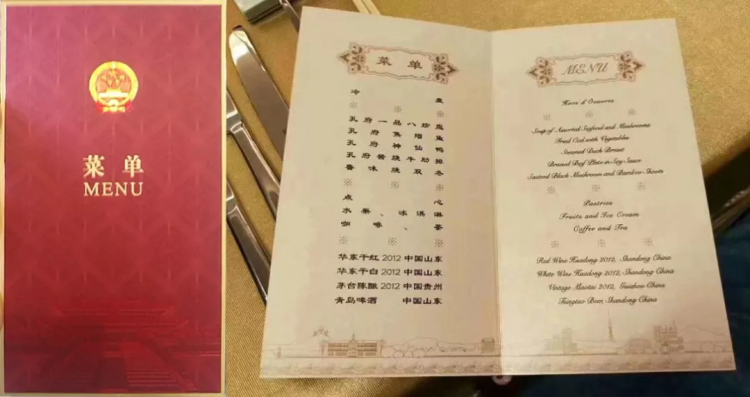 菜单
MENU
菜 单
冷 盘
孔府一品八珍盅
孔府焦熘鱼
孔府神仙鸭
孔府酱烧牛肋排
香味烧双冬
点 心
水果、冰淇淋
咖啡、茶
华东干红 2012 中国山东
华东干白 2012 中国山东
茅台陈酿 2012 中国贵州
青岛啤酒 中国山东
MENU
Hors d'Oeuvres
Soup of Assorted Seafood and Mushrooms
Fried Cod with Vegetables
Steamed Duck Breast
Braised Beef Plate in Soy Sauce
Sauteed Black Mushroom and Bamboo Shoots
Pastries
Fruits and Ice Cream
Coffee and Tea
Red Wine Huadong 2012, Shandong China
White Wine Huadong 2012, Shandong China
Vintage Maotai 2012, Guizhou China
Tsingtao Beer, Shandong China